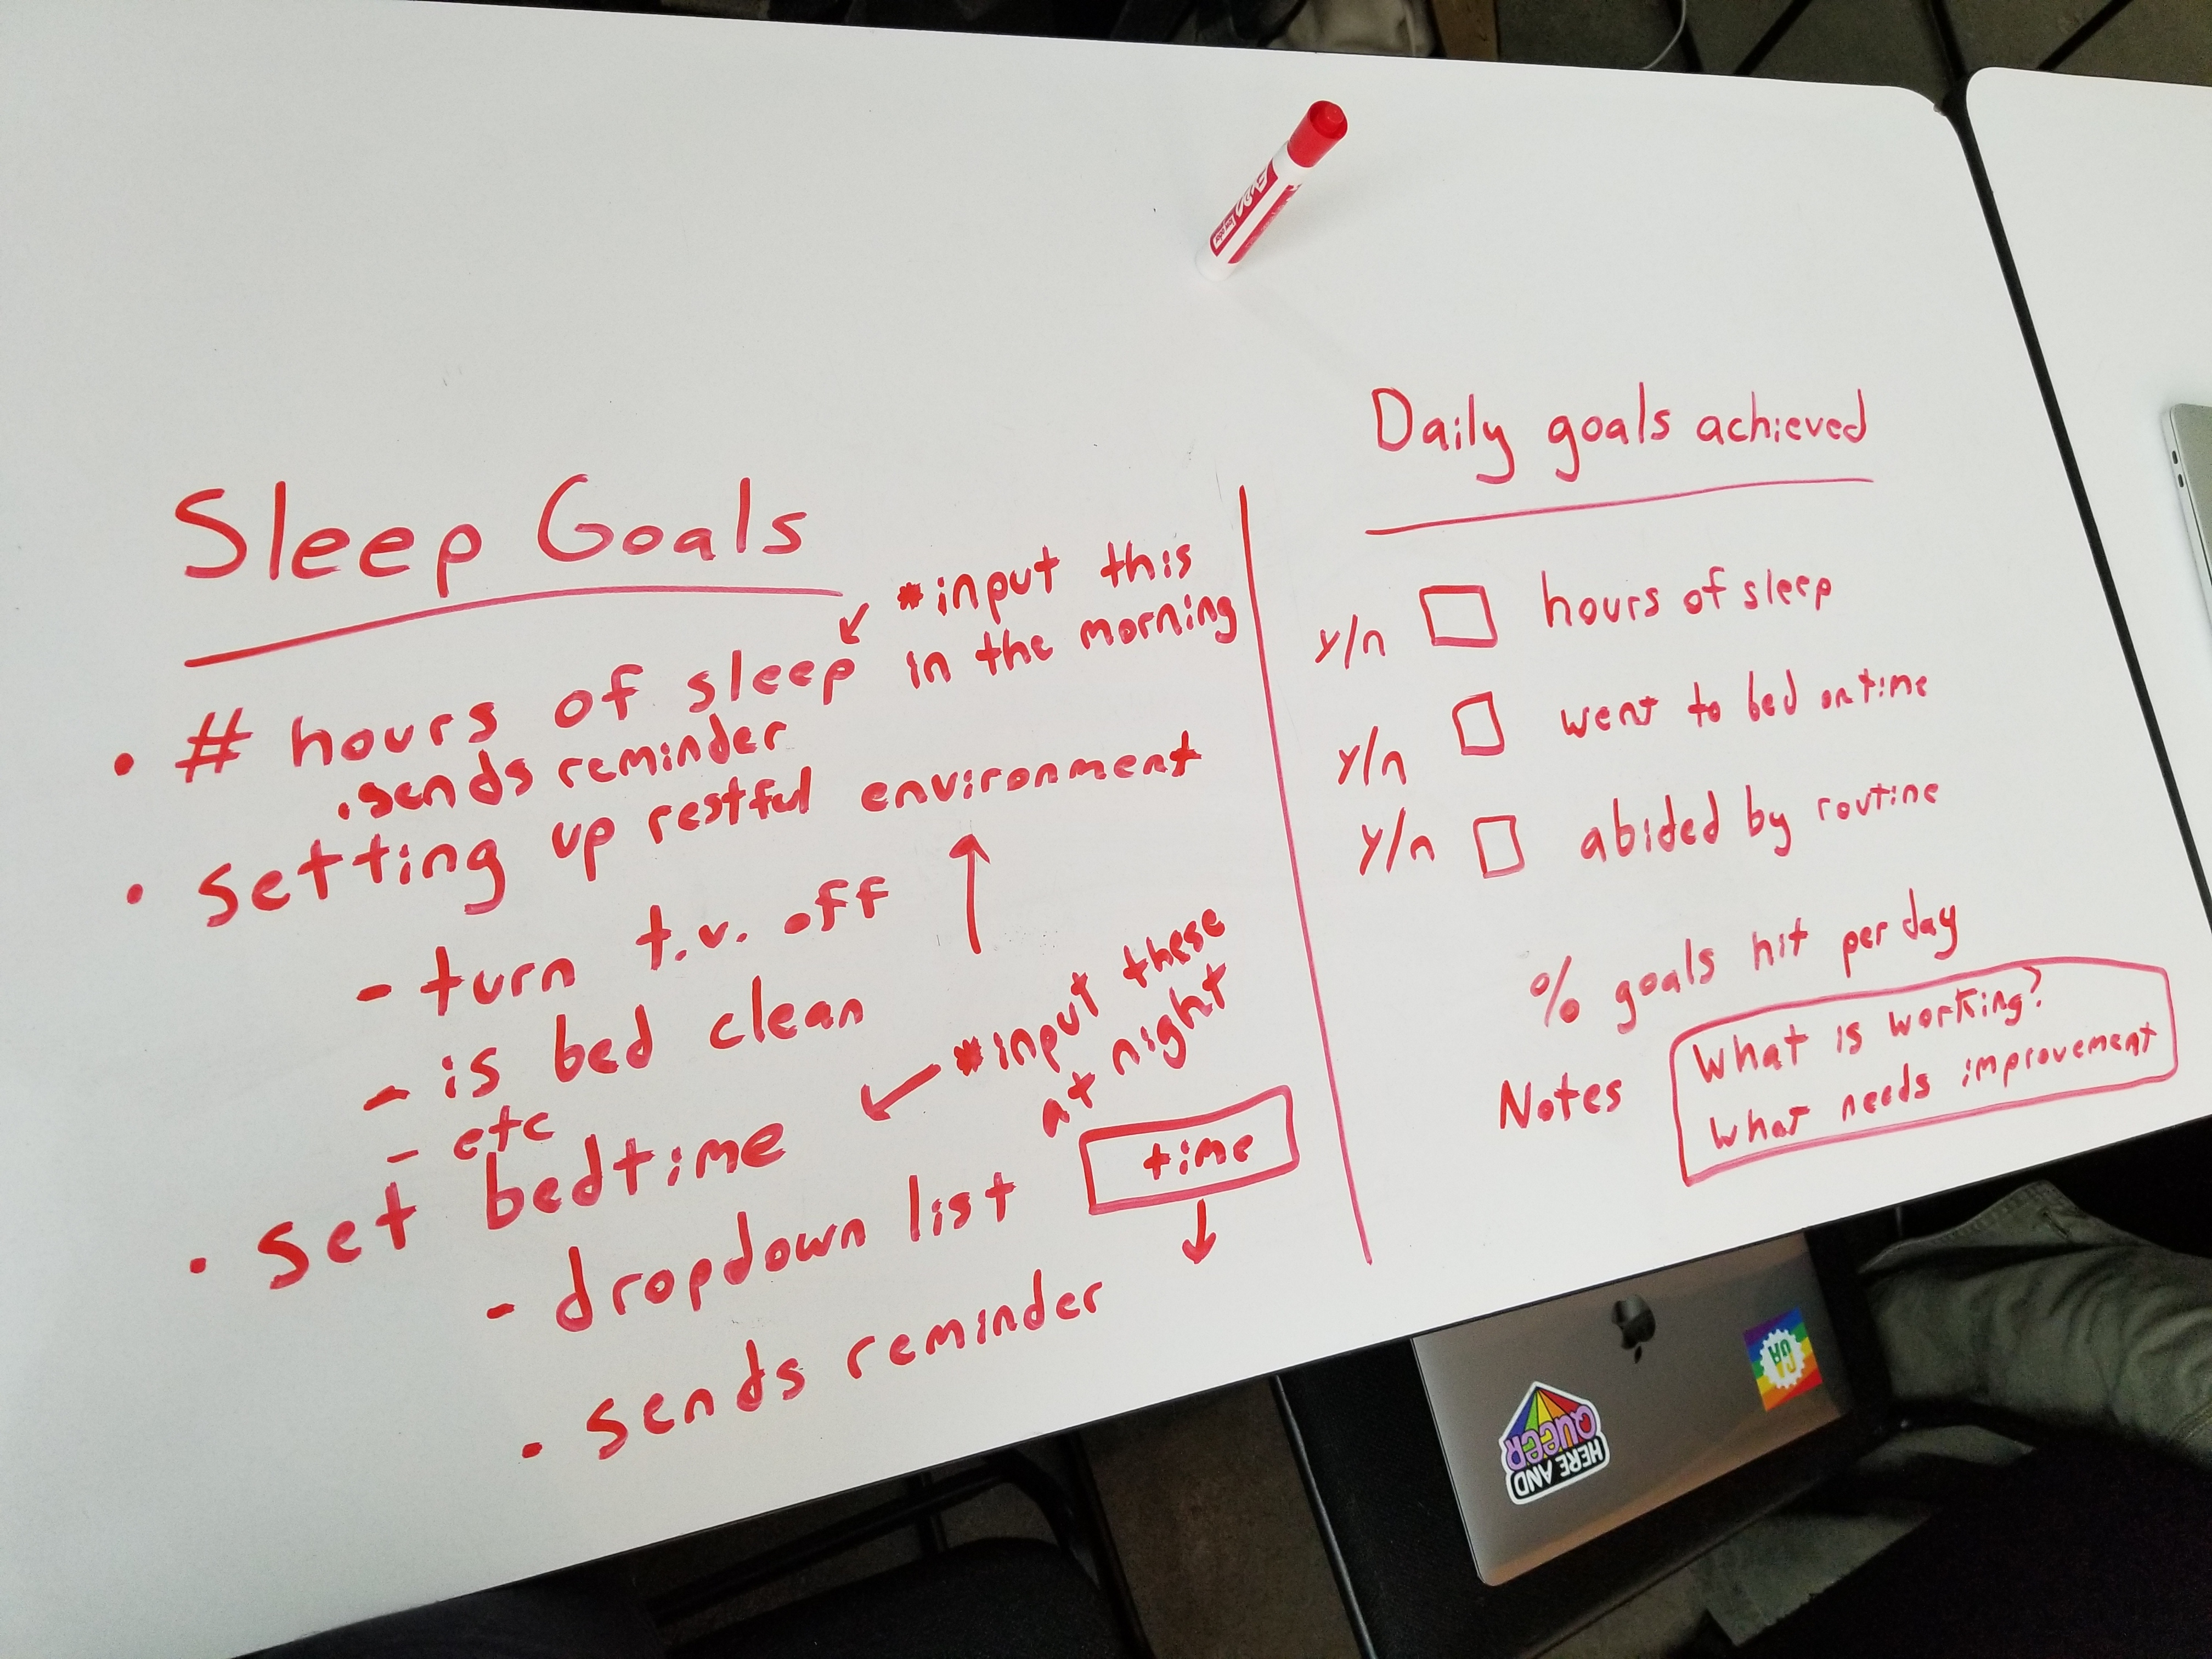 Sleep Goals
*input this
in the morning
• # hours of sleep
• sends reminder
• Setting up restful environment
- turn t.v. off
- is bed clean
- etc
*input these
at night
• Set bedtime
- dropdown list
time
• Sends reminder
Daily goals achieved
y/n hours of sleep
y/n went to bed on time
y/n abided by routine
% goals hit per day
Notes
What is working?
What needs improvement
EXPO
HERE AND
QUEER
GA